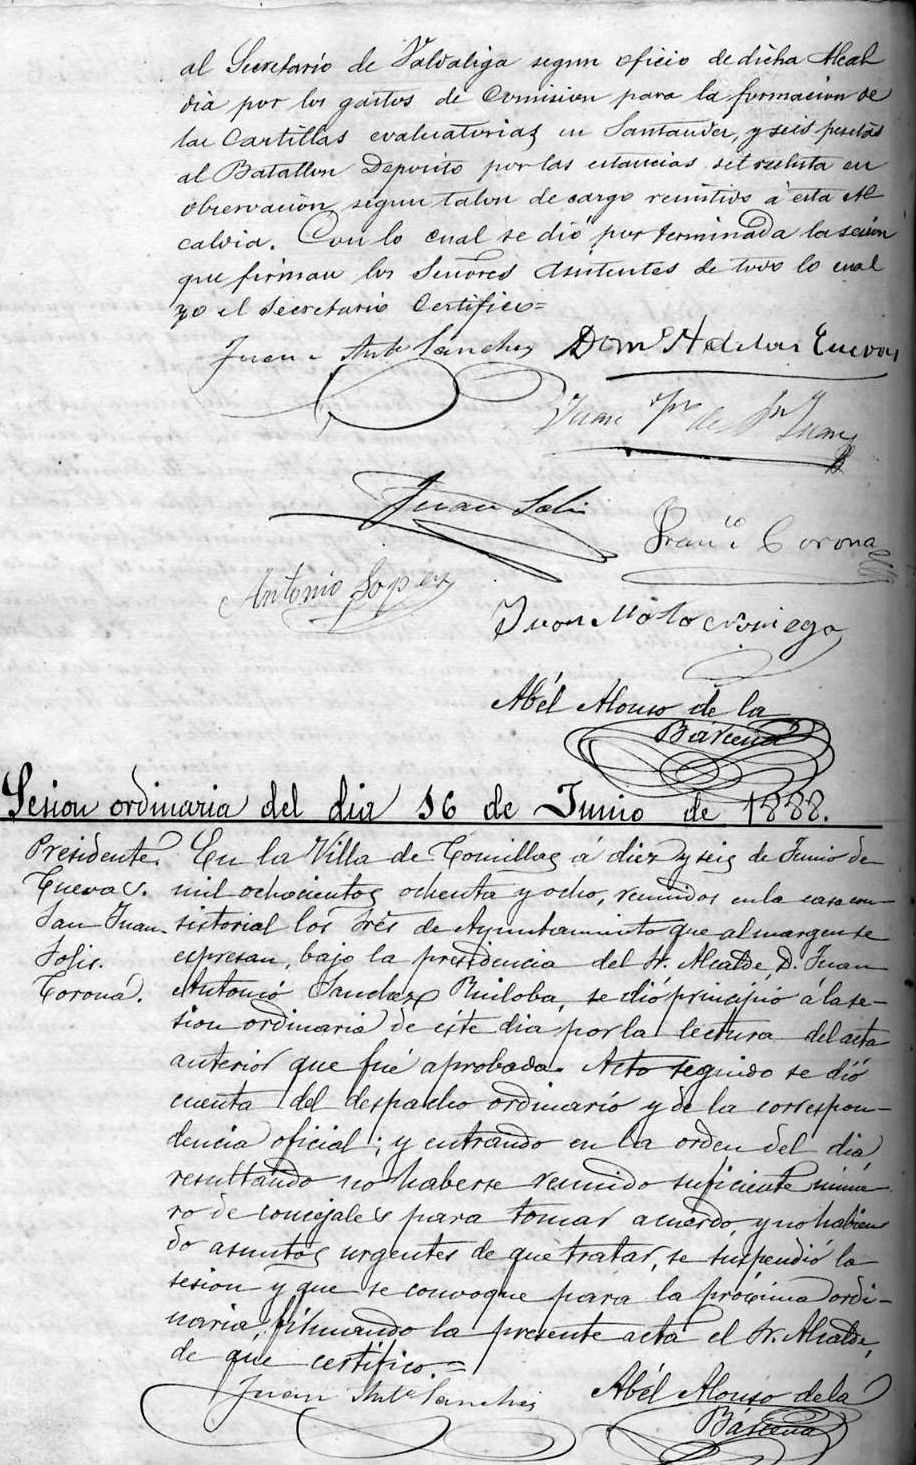 al Secretario de Valdaliga segun oficio de dicha Alcal
dia por los gastos de Comision para la formacion de
las Cartillas evaluatorias en Santander, y seis pesetas
al Batallon Deposito por las estancias del recluta en
observacion segun talon de cargo remitido á esta Al
caldia. Con lo cual se dió por terminada la sesion
que firman los Señores asistentes de todo lo cual
yo el Secretario Certifico=
Juan Antº Sanchez Domº H de las Cuevas
Juan de Sn Juan
Juan Solis
Franco Corona
Antonio Lopez
Juan Noriega
Abél Alonso de la
Bárcena
Sesion ordinaria del dia 16 de Junio de 1888.
Presidente. En la Villa de Comillas á diez y seis de Junio de
Cuevas. mil ochocientos ochenta y ocho, reunidos en la casa con-
San Juan. sistorial los Sres de Ayuntamiento que al margen se
Solis. espresan, bajo la presidencia del Sr. Alcalde, D. Juan
Corona. Antonio Sanchez Ruiloba, se dió principio á la se-
sion ordinaria de éste dia por la lectura del acta
anterior que fué aprobada. Acto seguido se dió
cuenta del despacho ordinario y de la correspon-
dencia oficial; y entrando en la orden del dia
resultando no haberse reunido suficiente núme
ro de concejales para tomar acuerdo y no habien
do asuntos urgentes de que tratar, se suspendió la
sesion y que se convoque para la próxima ordi-
naria, firmando la presente acta el Sr. Alcalde,
de que certifico.=
Juan Antº Sanchez Abél Alonso de la
Bárcena